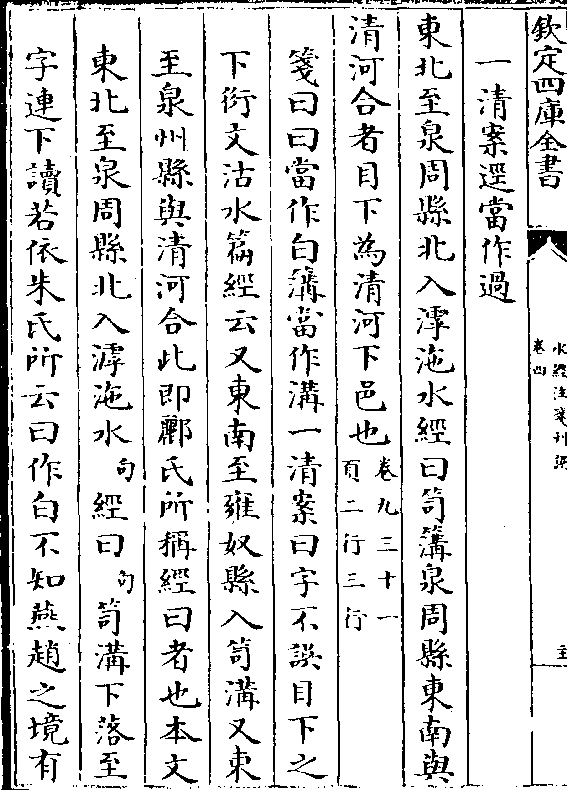 欽定四庫全書
水經注箋刊誤
卷四
一清案逕當作過
東北至泉周縣北入滹沲水經曰笱溝泉周縣東南與
清河合者目下為清河下邑也卷九三十一
頁二行三行
箋曰曰當作白溝當作溝一清案曰字不誤目下之
下衍文沽水篇經云又東南至雍奴縣入笱溝又東
至泉州縣與清河合此即酈氏所稱經曰者也本文
東北至泉周縣北入滹沲水句經曰句笱溝下落至
字連下讀若依朱氏所云曰作白不知燕趙之境有